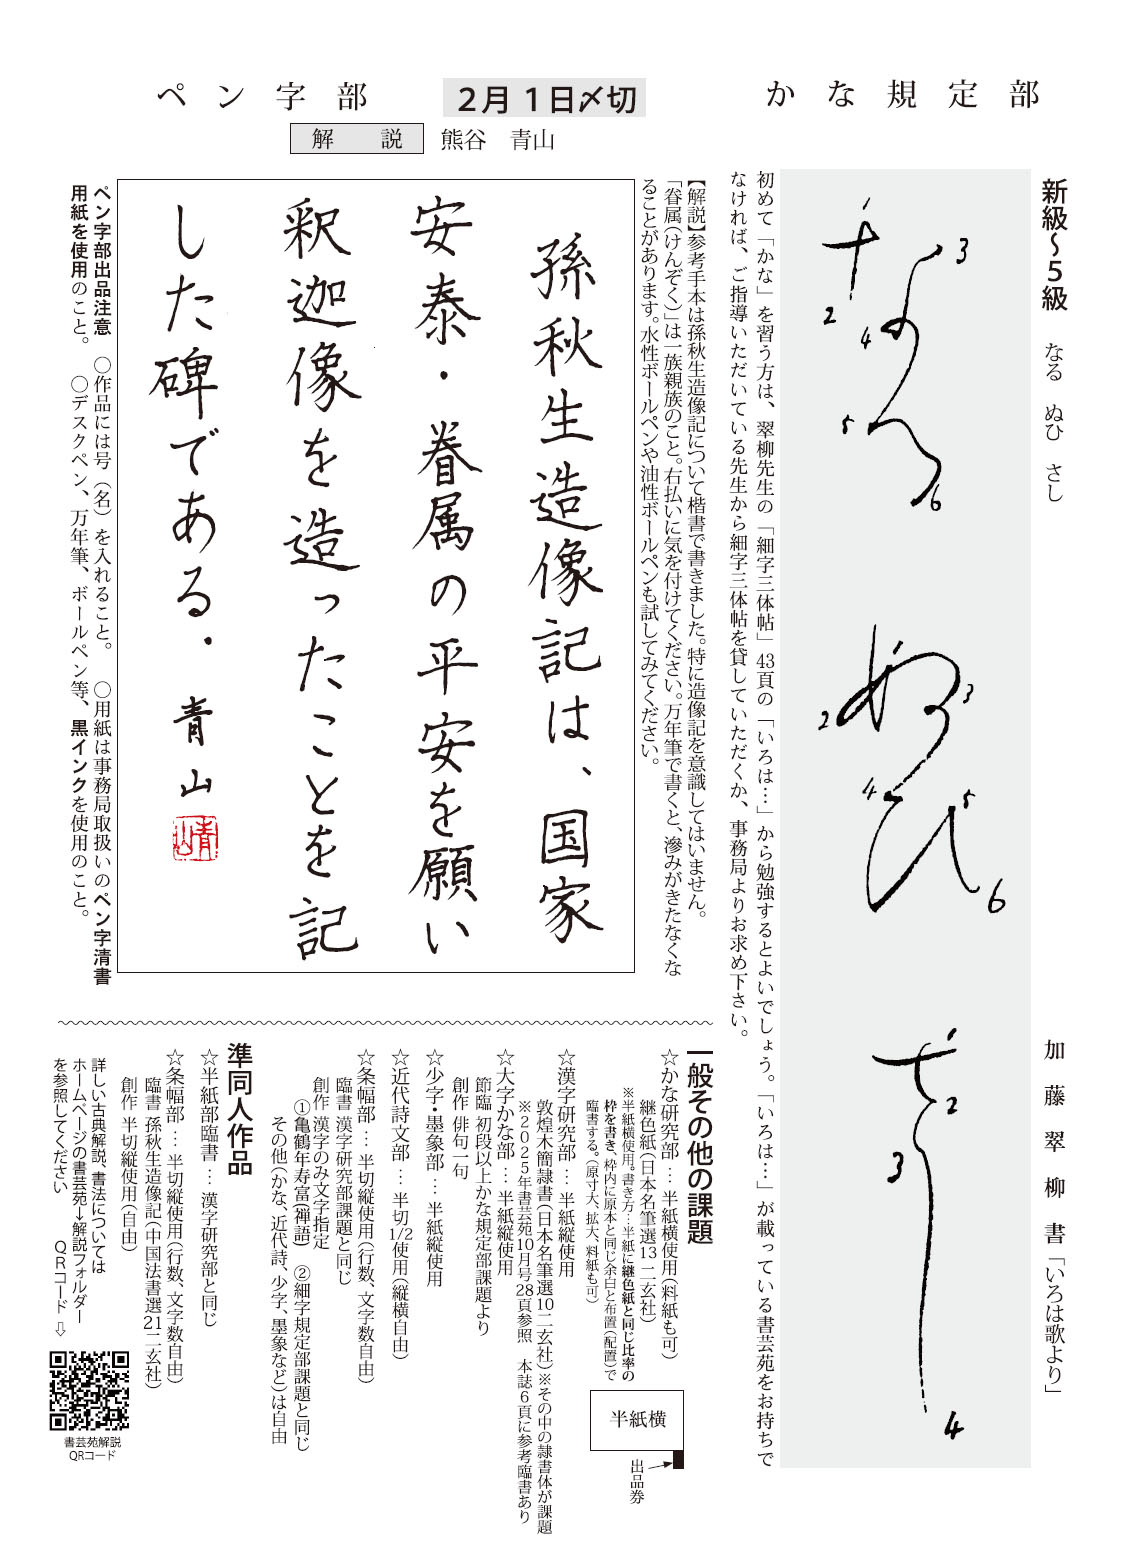 かな規定部
２月１日〆切
ペン字部
解　説　熊谷　青山
新級～５級　なる　ぬひ　さし
加藤翠柳書「いろは歌より」
1
2
3
4
5
6
なる
2
3
4
5
6
ぬひ
1
2
3
4
さし
初めて「かな」を習う方は、翠柳先生の「細字三体帖」43頁の「いろは…」から勉強するとよいでしょう。「いろは…」が載っている書芸苑をお持ちで
なければ、ご指導いただいている先生から細字三体帖を貸していただくか、事務局よりお求め下さい。
【解説】参考手本は孫秋生造像記について楷書で書きました。特に造像記を意識してはいません。
「眷属（けんぞく）」は一族親族のこと。右払いに気を付けてください。万年筆で書くと、滲みがきたなくな
ることがあります。水性ボールペンや油性ボールペンも試してみてください。
孫秋生造像記は、国家
安泰・眷属の平安を願い
釈迦像を造ったことを記
した碑である。青山
青山
ペン字部出品注意　○作品には号（名）を入れること。　○用紙は事務局取扱いのペン字清書
用紙を使用のこと。　○デスクペン、万年筆、ボールペン等、黒インクを使用のこと。
一般その他の課題
☆かな研究部…半紙横使用（料紙も可）
継色紙（日本名筆選13 二玄社）
※半紙横使用。書き方…半紙に継色紙と同じ比率の
枠を書き、枠内に原本と同じ余白と布置（配置）で
臨書する。（原寸大、拡大、料紙も可）
半紙横
出品券
☆漢字研究部…半紙縦使用
敦煌木簡隷書（日本名筆選10二玄社）※その中の隷書体が課題
※２０２５年書芸苑10月号28頁参照　本誌６頁に参考臨書あり
☆大字かな部…半紙縦使用
節臨 初段以上かな規定部課題より
創作 俳句一句
☆少字・墨象部…半紙縦使用
☆近代詩文部…半切1/2使用（縦横自由）
☆条幅部…半切縦使用（行数、文字数自由）
臨書 漢字研究部課題と同じ
創作 漢字のみ文字指定
①亀鶴年寿富（禅語）　②細字規定部課題と同じ
その他（かな、近代詩、少字、墨象など）は自由
準同人作品
☆半紙部臨書…漢字研究部と同じ
☆条幅部…半切縦使用（行数、文字数自由）
臨書 孫秋生造像記（中国法書選21二玄社）
創作 半切縦使用（自由）
詳しい古典解説、書法については
ホームページの書芸苑→解説フォルダー
を参照してください　　ＱＲコード⇨
書芸苑解説
QRコード